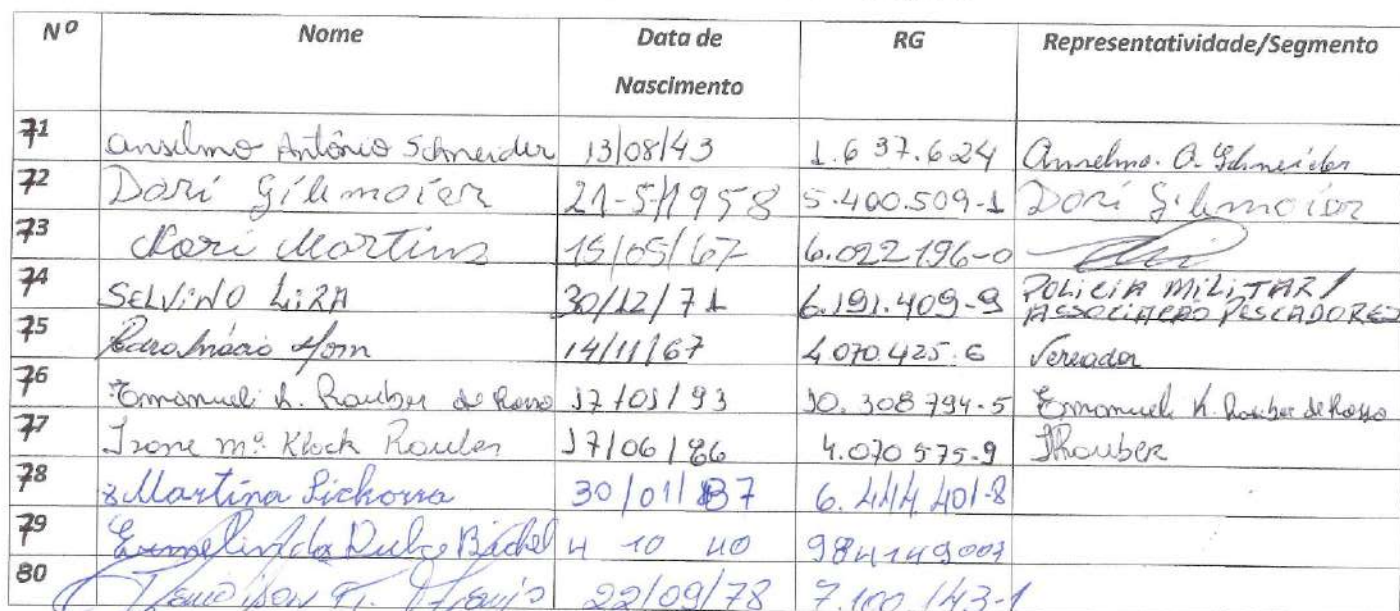 Nº Nome Data de Nascimento RG Representatividade/Segmento
71 Anselmo Antônio Schneider 13/08/43 1.637.624 Anselmo. A. Schneider
72 Dori Gilmoier 21-5-1958 5.400.509-1 Dori Gilmoier
73 Nori Martins 15/05/67 6.022196-0
74 SELViNO LiRA 30/12/71 6.191.409-9 POLiCIA MiLiTAR/
ASSOCIAÇÃO PESCADORES
75 Pedro Inácio Horn 14/11/67 4.070.425.6 Vereador
76 Emanueli K. Rauber de Rosso 17/01/93 10.308794-5 Emanueli K. Rauber de Rosso
77 Irone Mª Klock Rauber 17/06/66 4.070575-9 IRauber
78 Martina 30/01/37 6.444401-8
79 Dulce Bächel 4 10 40 984149007
80 22/09/78 7.100143-1